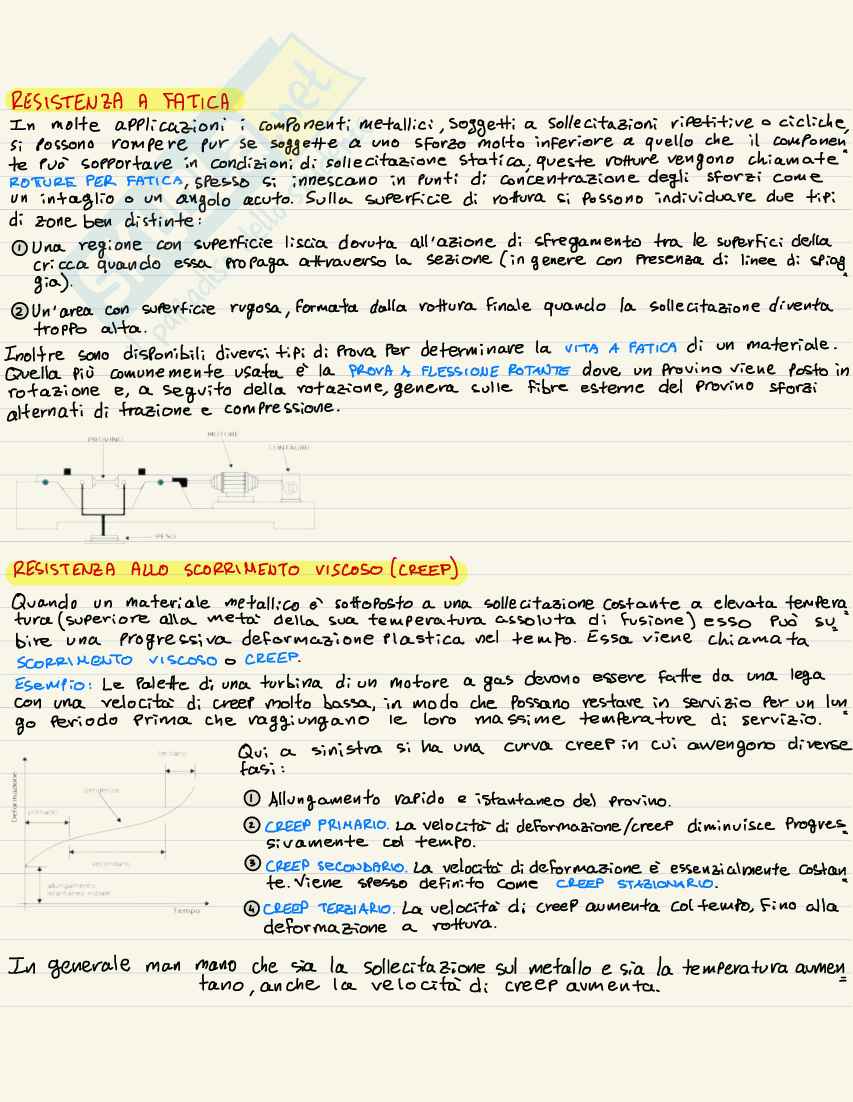 RESISTENZA A FATICA
In molte applicazioni i componenti metallici, soggetti a sollecitazioni ripetitive o cicliche,
si possono rompere pur se soggette a uno sforzo molto inferiore a quello che il componen
te può sopportare in condizioni di sollecitazione statica, queste rotture vengono chiamate
ROTURE PER FATICA, spesso si innescano in punti di concentrazione degli sforzi come
un intaglio o un angolo acuto. Sulla superficie di rottura si possono individuare due tipi
di zone ben distinte:
① Una regione con superficie liscia dovuta all'azione di sfregamento tra le superfici della
cricca quando essa propaga attraverso la sezione (in genere con presenza di linee di spiag
gia).
② Un'area con superficie rugosa, formata dalla rottura finale quando la sollecitazione diventa
troppo alta.
Inoltre sono disponibili diversi tipi di prova per determinare la VITA A FATICA di un materiale.
Quella più comunemente usata è la PROVA A FLESSIONE ROTANTE dove un provino viene posto in
rotazione e, a seguito della rotazione, genera sulle fibre esterne del provino sforzi
alternati di trazione e compressione.
PROVINO
MOTORE
CONTAGIRI
PESO
RESISTENZA ALLO SCORRIMENTO VISCOSO (CREEP)
Quando un materiale metallico è sottoposto a una sollecitazione costante a elevata tempera
tura (superiore alla metà della sua temperatura assoluta di fusione) esso può su
bire una progressiva deformazione plastica nel tempo. Essa viene chiamata
SCORRIMENTO VISCOSO o CREEP.
Esempio: Le palette di una turbina di un motore a gas devono essere fatte da una lega
con una velocità di creep molto bassa, in modo che possano restare in servizio per un lun
go periodo prima che raggiungano le loro massime temperature di servizio.
Deformazione
terziario
pendenza
primario
secondario
allungamento
istantaneo iniziale
Tempo
Qui a sinistra si ha una curva creep in cui avvengono diverse
fasi:
① Allungamento rapido e istantaneo del provino.
② CREEP PRIMARIO. La velocità di deformazione/creep diminuisce progres
sivamente col tempo.
③ CREEP SECONDARIO. La velocità di deformazione è essenzialmente costan
te. Viene spesso definito come CREEP STAZIONARIO.
④ CREEP TERZIARIO. La velocità di creep aumenta col tempo, fino alla
deformazione a rottura.
In generale man mano che sia la sollecitazione sul metallo e sia la temperatura aumen
tano, anche la velocità di creep aumenta.